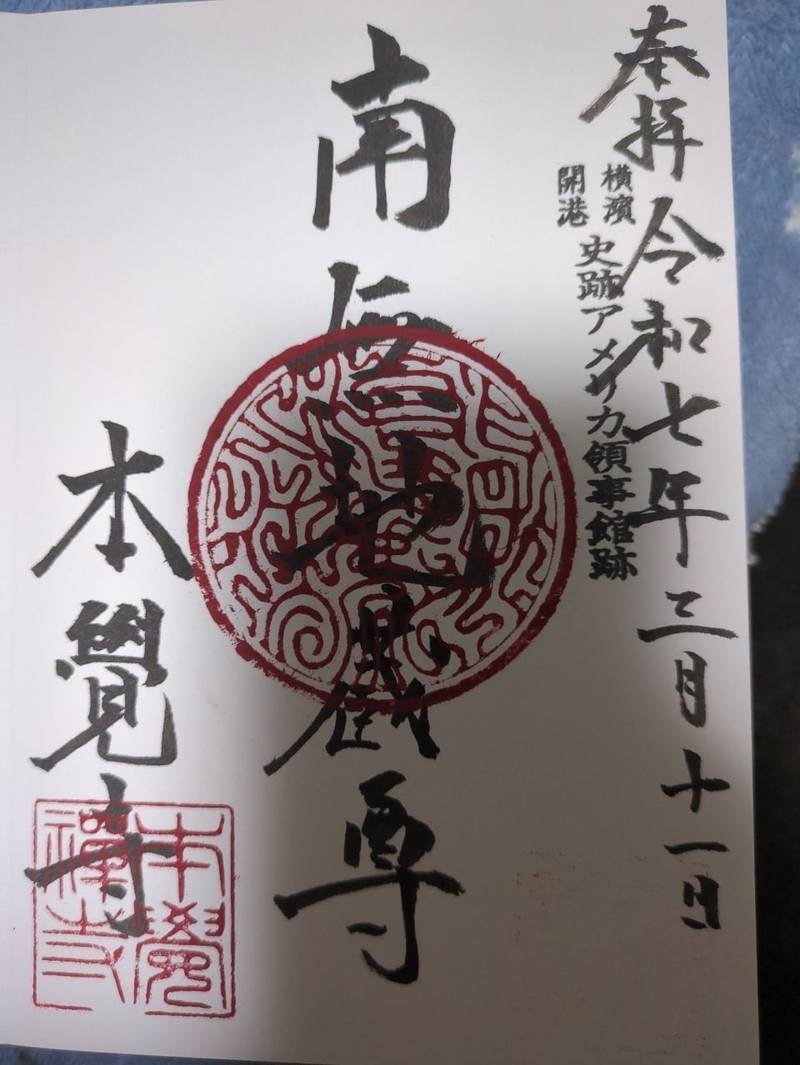 奉拝 令和七年三月十一日
横濱
開港
史跡アメリカ領事館跡
南無地蔵尊
本覺寺
本覺
禅寺